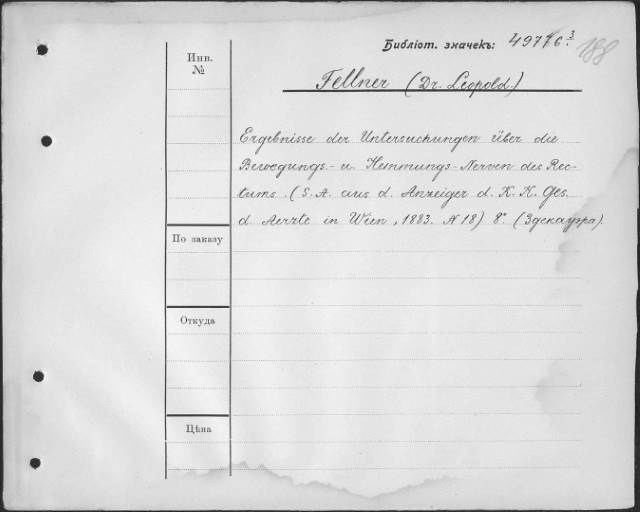 Библіот. значекъ: 49776.³
188
Инв.
№
Fellner (Dr. Leopold.)
Ergebnisse der Untersuchungen über die
Bewegungs- u. Hemmungs-Nerven des Rec-
tums. (S. A. aus d. Anzeiger d. K. K. Ges.
d Aerzte in Wien, 1883. N 18) 8°. (Эдекауэра).
По заказу
Откуда
Цѣна